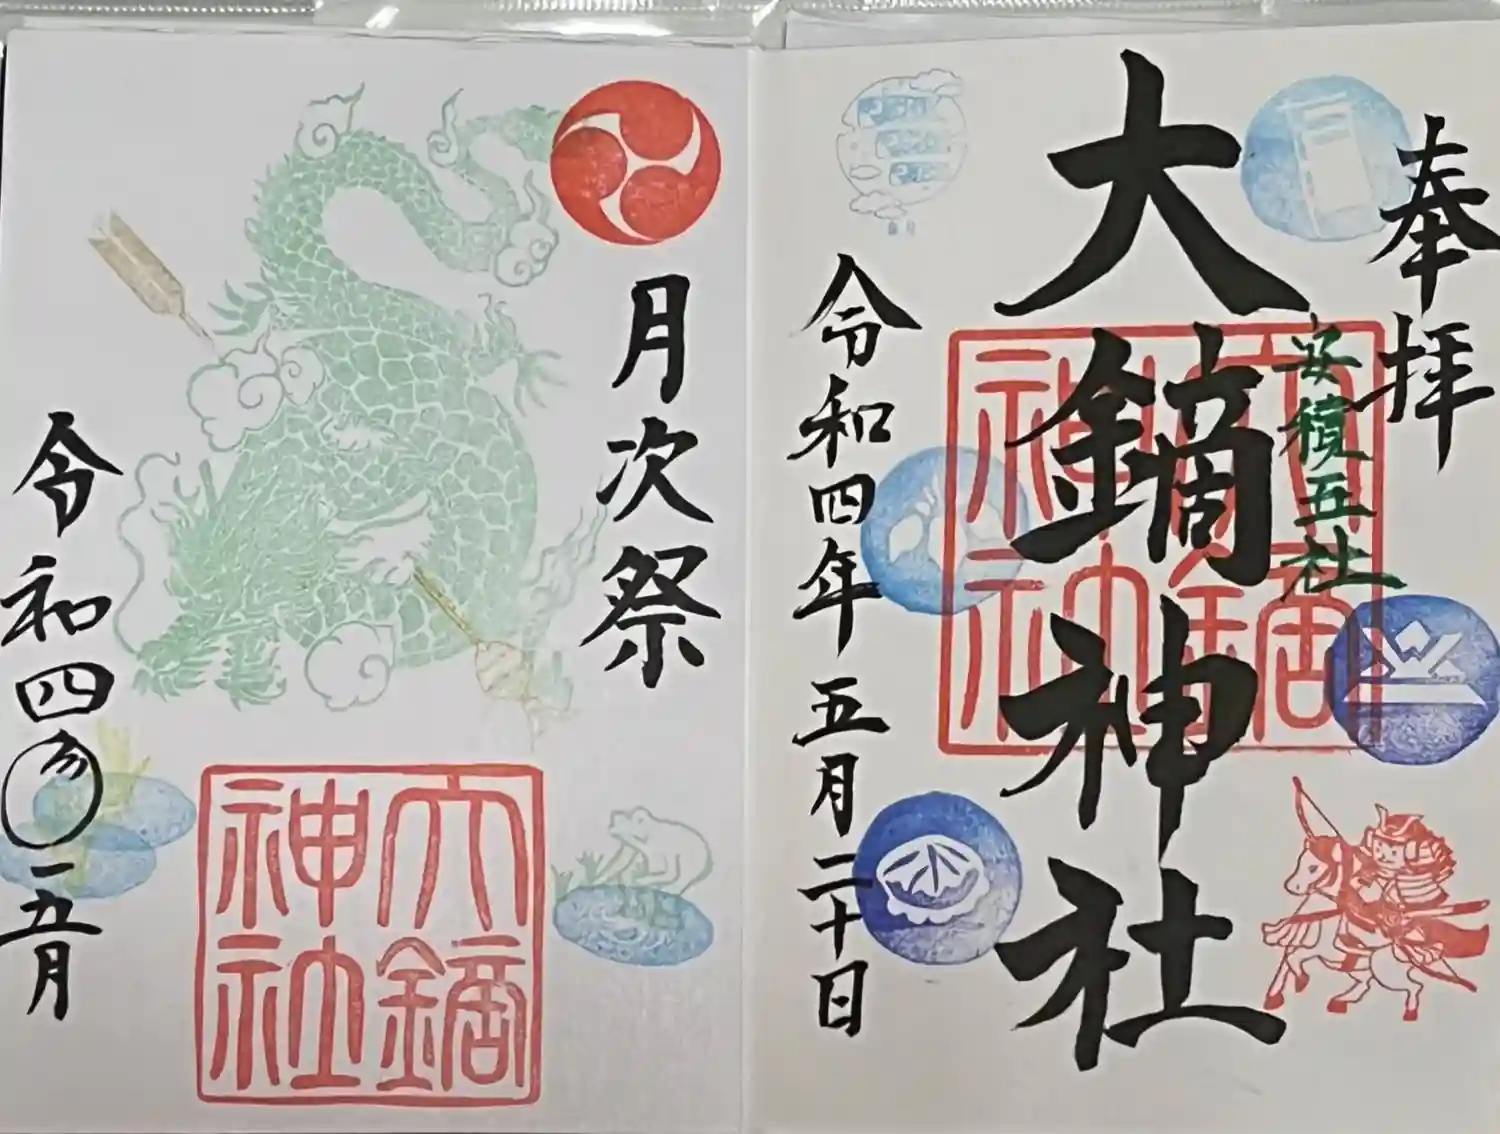 奉拝
安積五社
大鏑神社
大鏑神社
令和四年五月二十日
月次祭
大鏑神社
令和四 五月